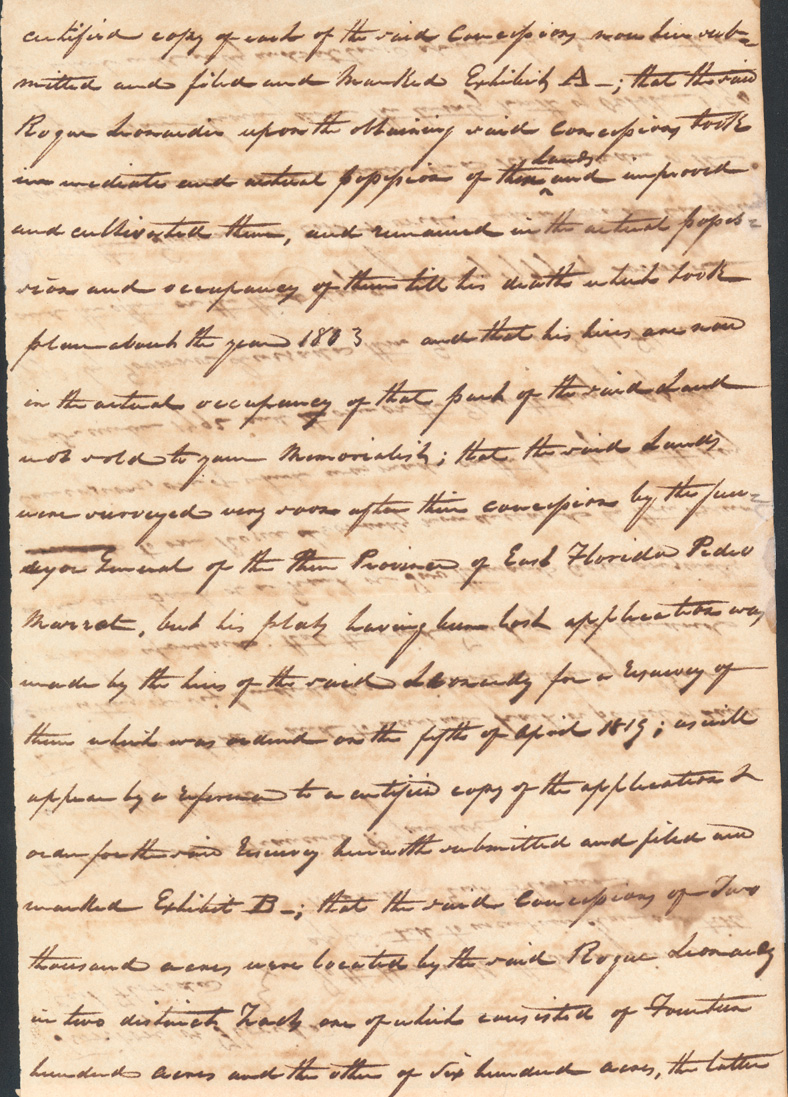 certified copy of each of the said Concessions now here sub=
mitted and filed and Marked Exhibit A_; that the said
Roque Leonardie upon the obtaining said concessions took
immediate and actual possession of them Lands and improved
and cultivated them, and remained in the actual posses=
sion and occupancy of them till his death which took
place about the year 1803 and that his heirs are now
in the actual occupancy of that part of the said Land
not sold to your Memorialist; that the said Lands
were surveyed very soon after their concession by the Sur=
veyor General of the then Province of East Florida Pedro
Marrot, but his plats having been lost application was
made by the heirs of the said Leonardy for a Resurvey of
them which was ordered on the fifth of April 1819; as will
appear by a reference to a certified copy of the application &
order for the said Resurvey herewith submitted and filed and
marked Exhibit B_; that the said Concessions of Two
thousand acres were located by the said Roque Leonardy
in two distinct Tracts one of which consisted of Fourteen
hundred acres and the other of Six hundred acres, the latter